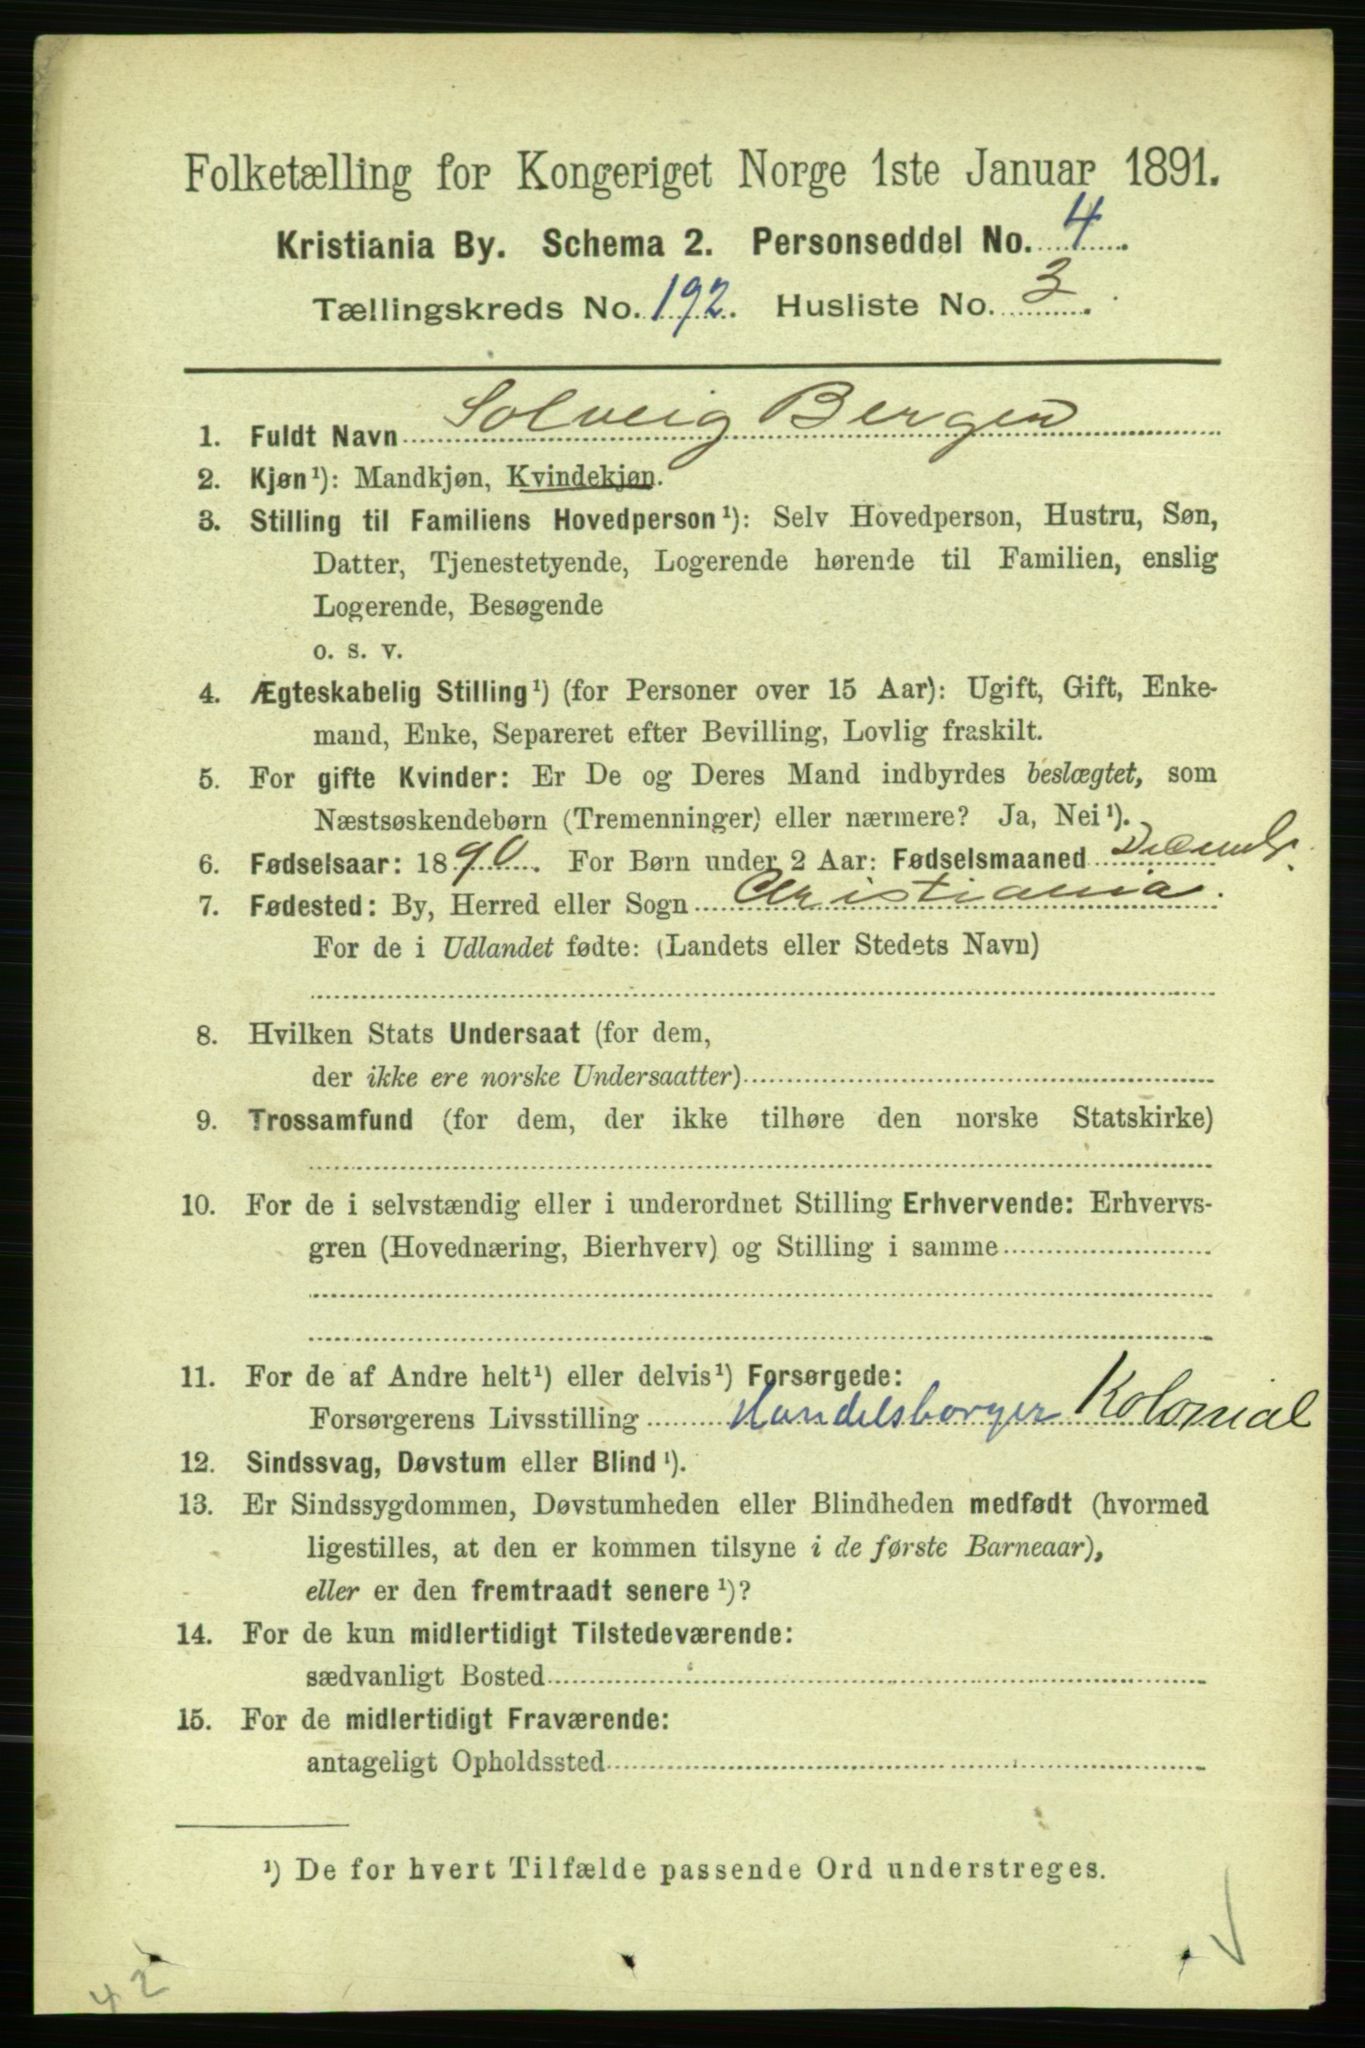 Folketælling for Kongeriget Norge 1ste Januar 1891.
Kristiania By. Schema 2. Personseddel No. 4.
Tællingskreds No. 192. Husliste No. 3.
1. Fuldt Navn Solveig Bergen
2. Kjøn¹): Mandkjøn, Kvindekjøn.
3. Stilling til Familiens Hovedperson¹): Selv Hovedperson, Hustru, Søn,
Datter, Tjenestetyende, Logerende hørende til Familien, enslig
Logerende, Besøgende
o. s. v.
4. Ægteskabelig Stilling¹) (for Personer over 15 Aar): Ugift, Gift, Enke-
mand, Enke, Separeret efter Bevilling, Lovlig fraskilt.
5. For gifte Kvinder: Er De og Deres Mand indbyrdes beslægtet, som
Næstsøskendebørn (Tremenninger) eller nærmere? Ja, Nei¹).
6. Fødselsaar: 1890. For Børn under 2 Aar: Fødselsmaaned Decembr.
7. Fødested: By, Herred eller Sogn Christiania.
For de i Udlandet fødte: (Landets eller Stedets Navn)
8. Hvilken Stats Undersaat (for dem,
der ikke ere norske Undersaatter)
9. Trossamfund (for dem, der ikke tilhøre den norske Statskirke)
10. For de i selvstændig eller i underordnet Stilling Erhvervende: Erhvervs-
gren (Hovednæring, Bierhverv) og Stilling i samme
11. For de af Andre helt¹) eller delvis¹) Forsørgede:
Forsørgerens Livsstilling Handelsborger Kolonial
12. Sindssvag, Døvstum eller Blind¹).
13. Er Sindssygdommen, Døvstumheden eller Blindheden medfødt (hvormed
ligestilles, at den er kommen tilsyne i de første Barneaar),
eller er den fremtraadt senere¹)?
14. For de kun midlertidigt Tilstedeværende:
sædvanligt Bosted
15. For de midlertidigt Fraværende:
antageligt Opholdssted
¹) De for hvert Tilfælde passende Ord understreges.
42